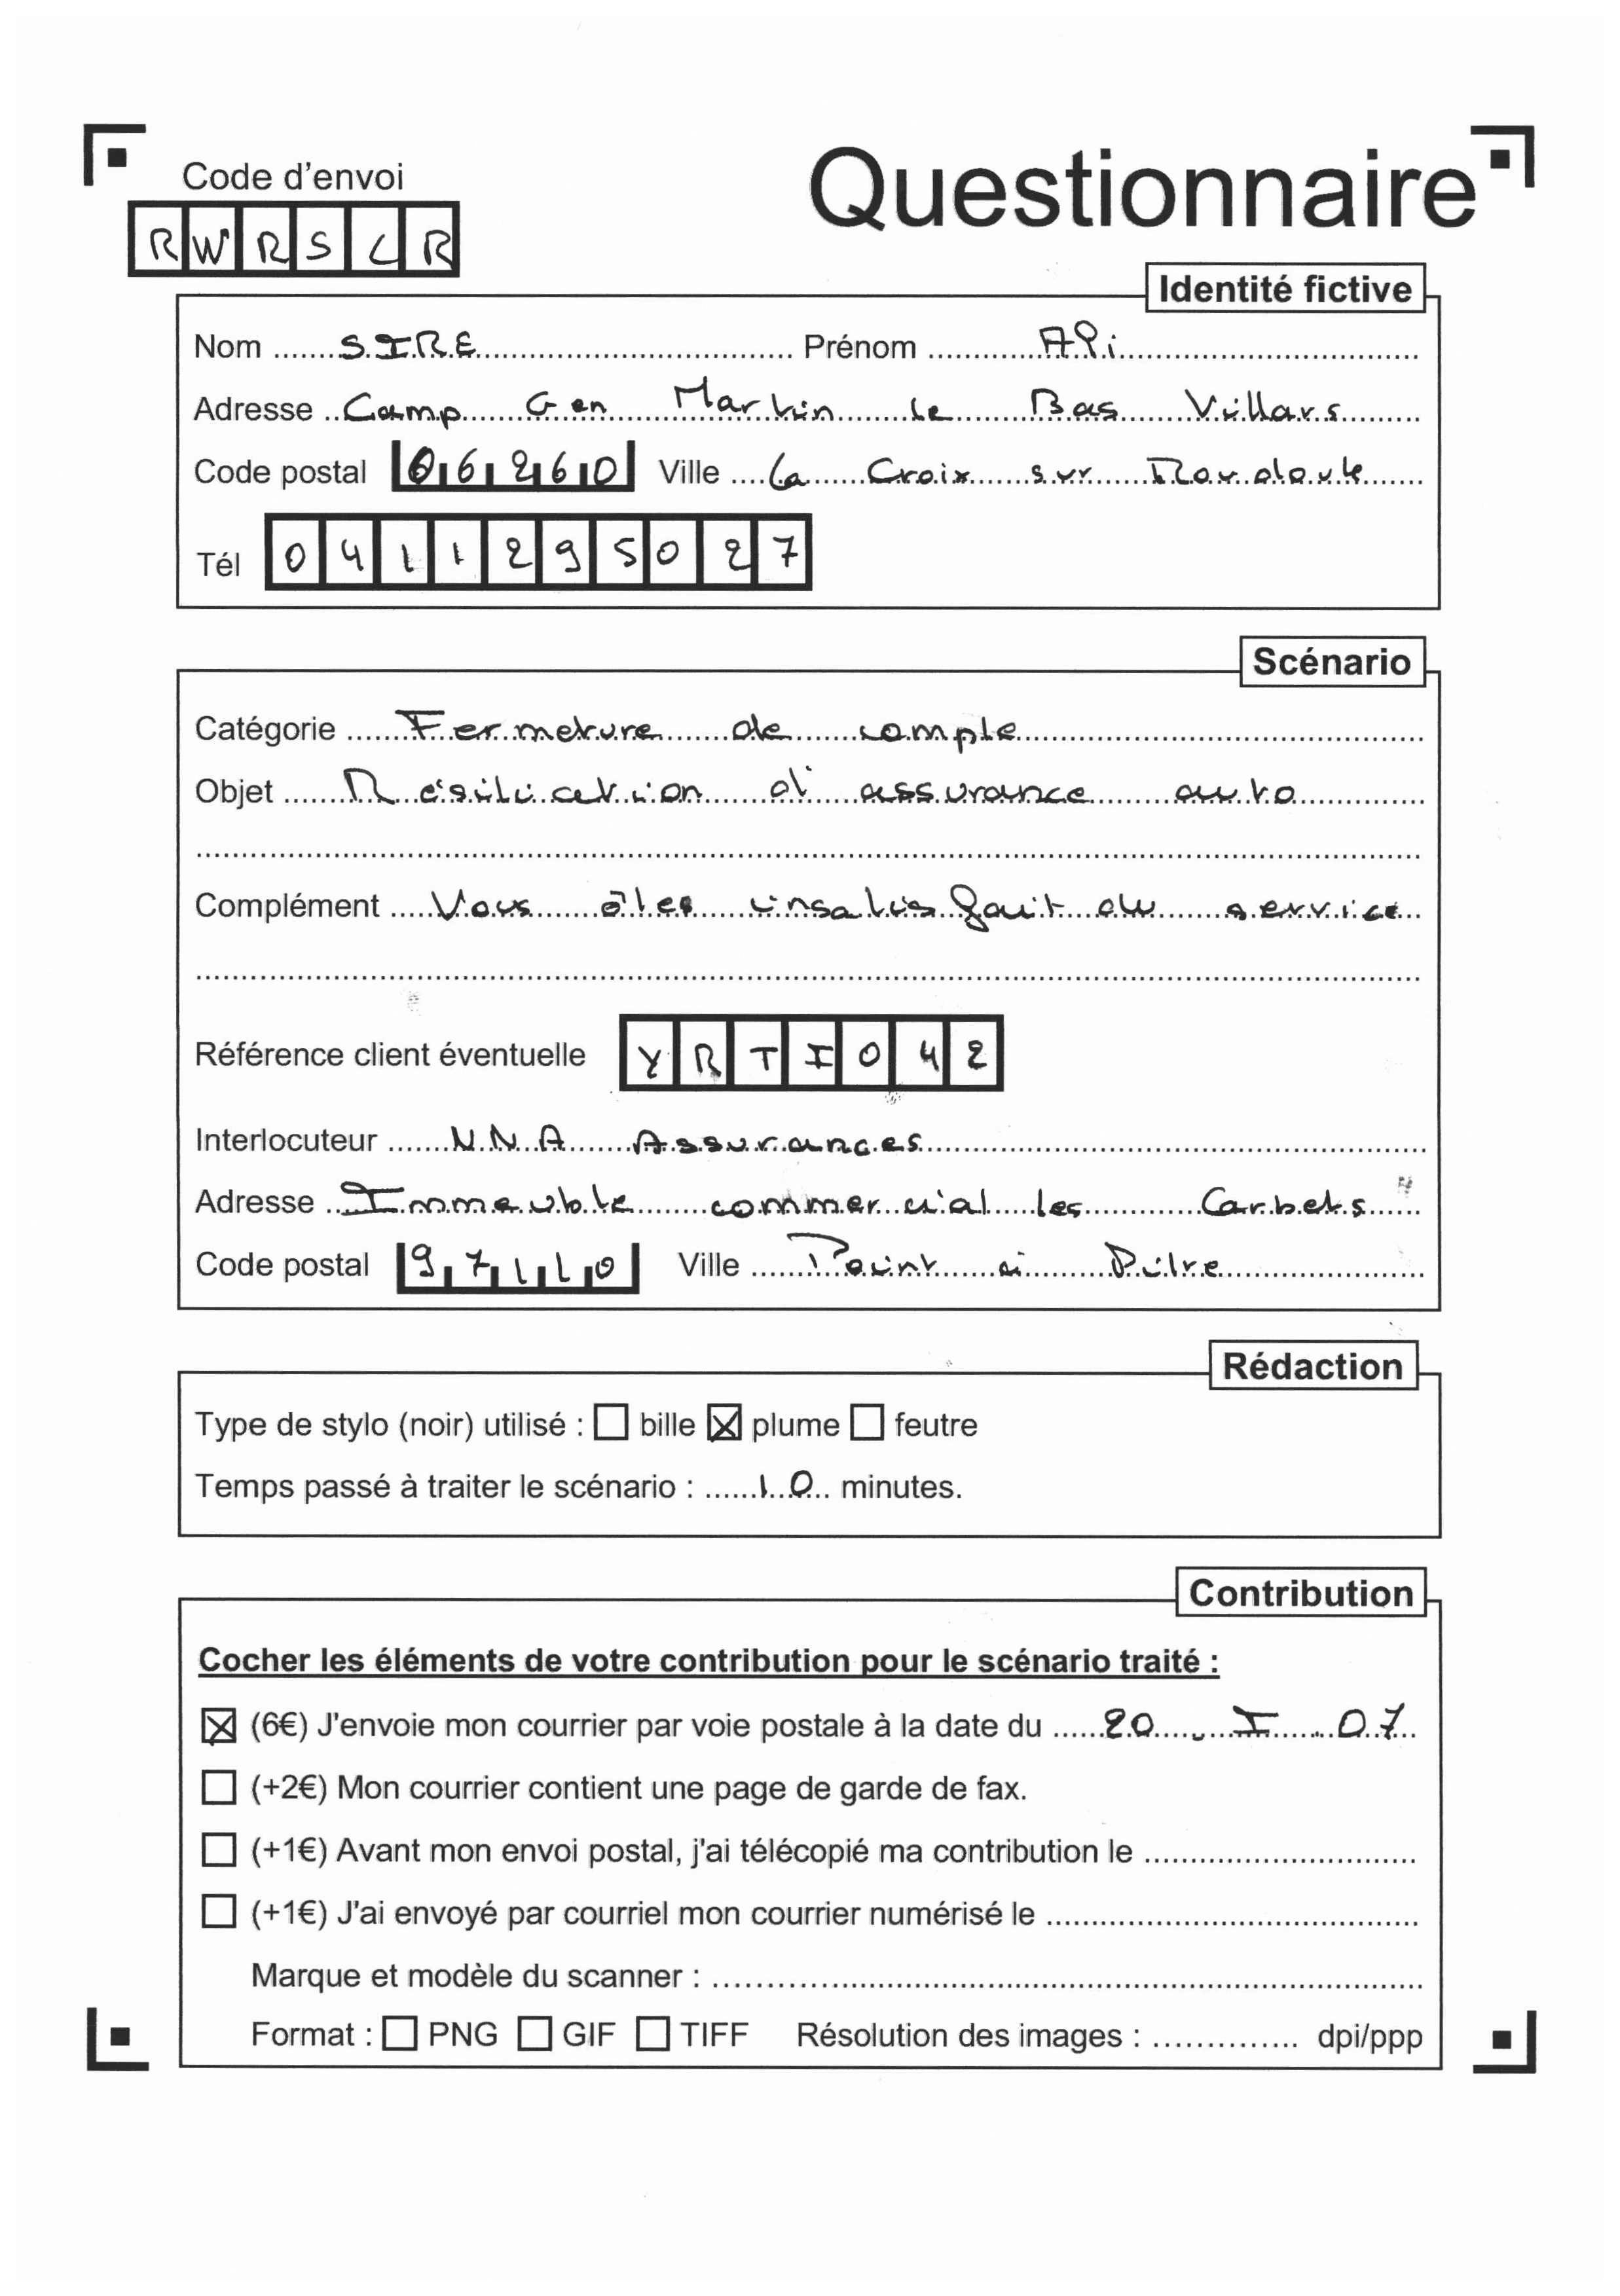 Code d'envoi
Questionnaire
RWRSLR
Identité fictive
Nom SIRE Prénom
Adresse Camp Gen Martin le Bas Villars
Code postal 06260 Ville La Croix sur Roudoule
Tél 0411295027
Scénario
Catégorie Fermeture de compte
Objet Résiliation d'assurance auto
Complément Vous êtes insatisfait du service
Référence client éventuelle YRTI042
Interlocuteur NNA Assurances
Adresse Immeuble commercial les Carbets
Code postal 97110 Ville Point à Pitre
Rédaction
Type de stylo (noir) utilisé : ☐ bille ☒ plume ☐ feutre
Temps passé à traiter le scénario : 10 minutes.
Contribution
Cocher les éléments de votre contribution pour le scénario traité :
☒ (6€) J'envoie mon courrier par voie postale à la date du 20 . I . 07
☐ (+2€) Mon courrier contient une page de garde de fax.
☐ (+1€) Avant mon envoi postal, j'ai télécopié ma contribution le
☐ (+1€) J'ai envoyé par courriel mon courrier numérisé le
Marque et modèle du scanner :
Format : ☐ PNG ☐ GIF ☐ TIFF Résolution des images : dpi/ppp